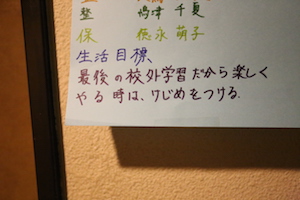 登 嶋津 千夏
保 徳永 萌子
生活目標、
最後の校外学習だから楽しく
やる時は、けじめをつける.